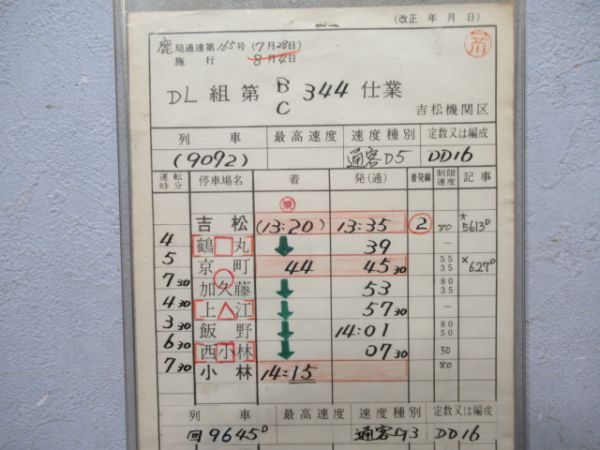 (改正 年 月 日)
鹿局通達第165号(7月28日)
施行 8月4日
DL 組第 B/C 344 仕業
吉松機関区
列車 最高速度 速度種別 定数又は編成
(9092) 通客D5 DD16
運転時分 停車場名 着 発(通) 着発線 制限速度 記事
吉松 (13:20) 13:35 ② 80 *5613D
4 鶴丸 ↓ 39 —
5 京町 44 45 30 55 35 ×627D
7 30 加久藤 ↓ 53 80 35
4 30 上江 ↓ 57 30 —
3 30 飯野 ↓ 14:01 80 50
6 30 西小林 ↓ 07 30 50
7 30 小林 14:15 80
列車 最高速度 速度種別 定数又は編成
回9645D 通客G3 DD16